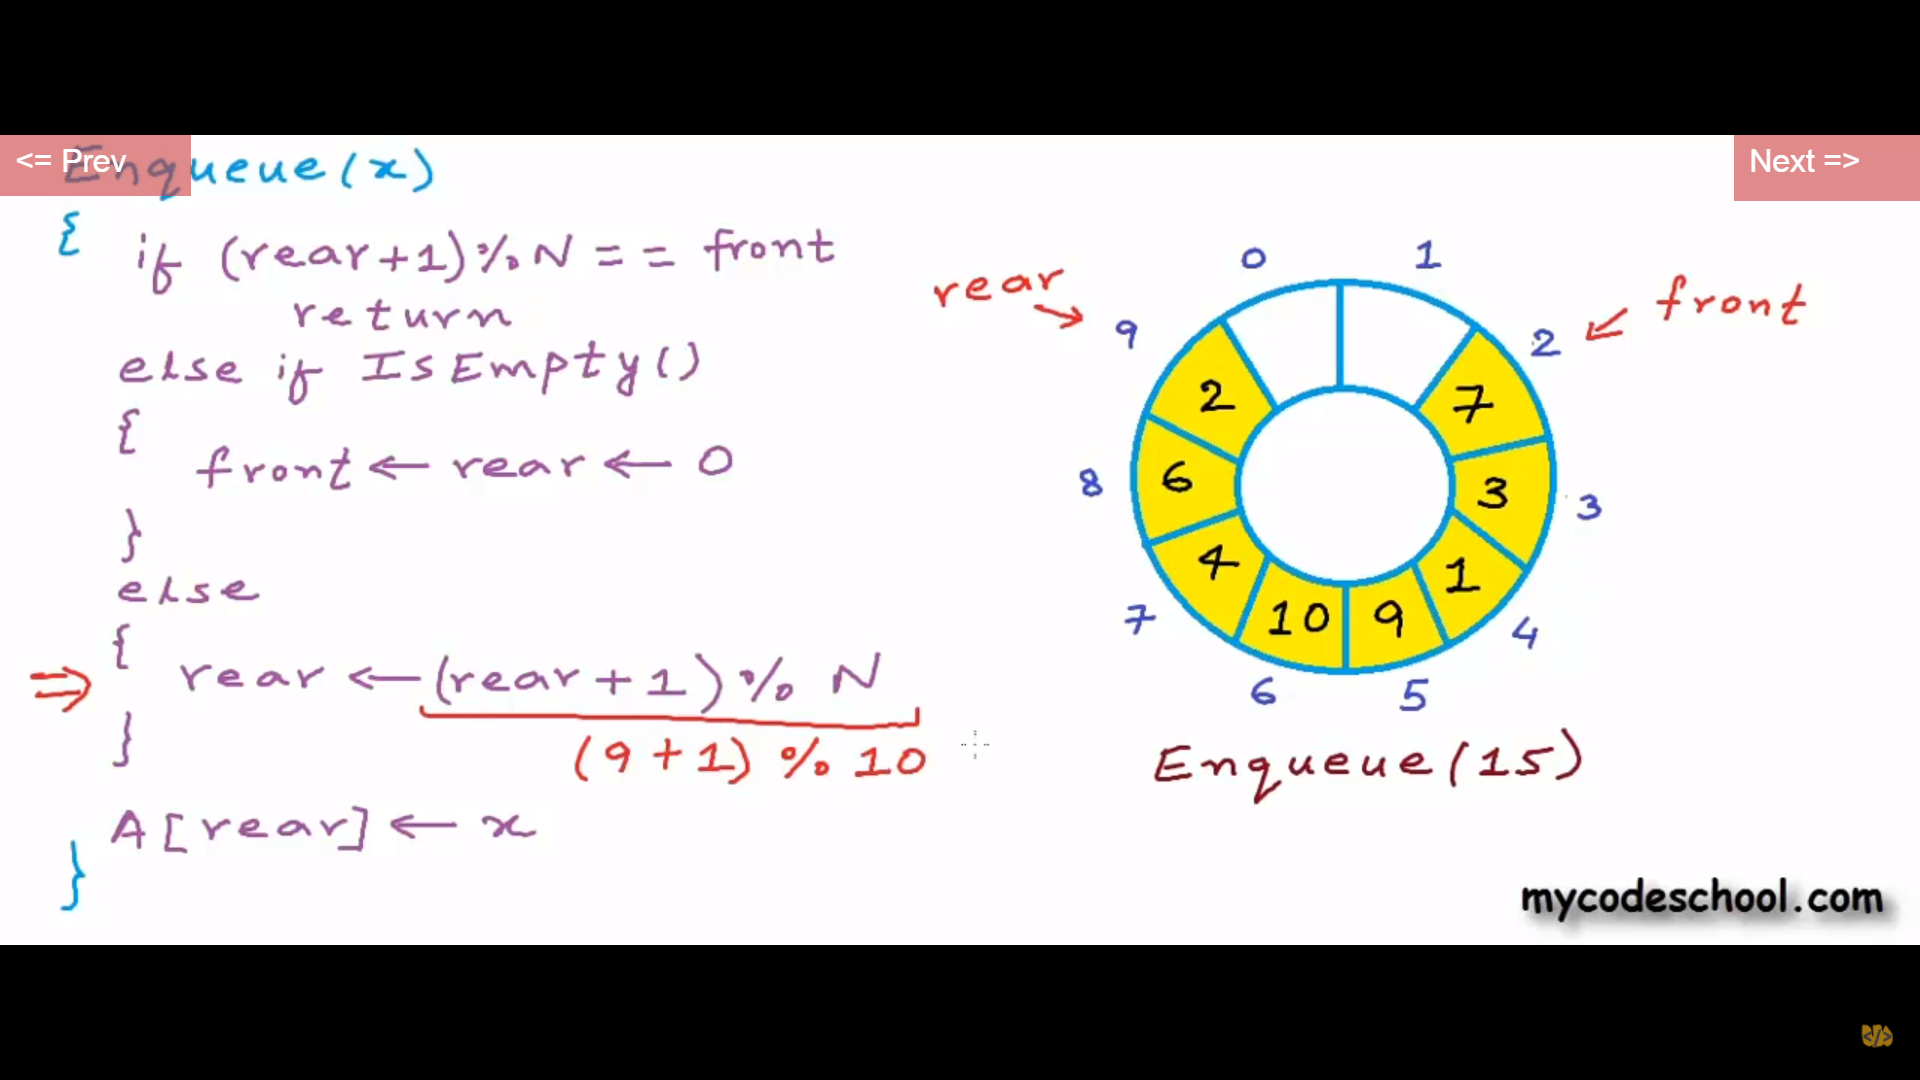 <= Prev
Next =>
Enqueue(x)
{
if (rear+1)%N == front
return
else if IsEmpty()
{
front ← rear ← 0
}
else
{
⇒ rear ← (rear+1)% N
}
(9+1) % 10
A[rear] ← x
}
0 1
rear → 9
2 ← front
2 7
8 6 3 3
4 1
10 9
7 4
6 5
Enqueue(15)
mycodeschool.com